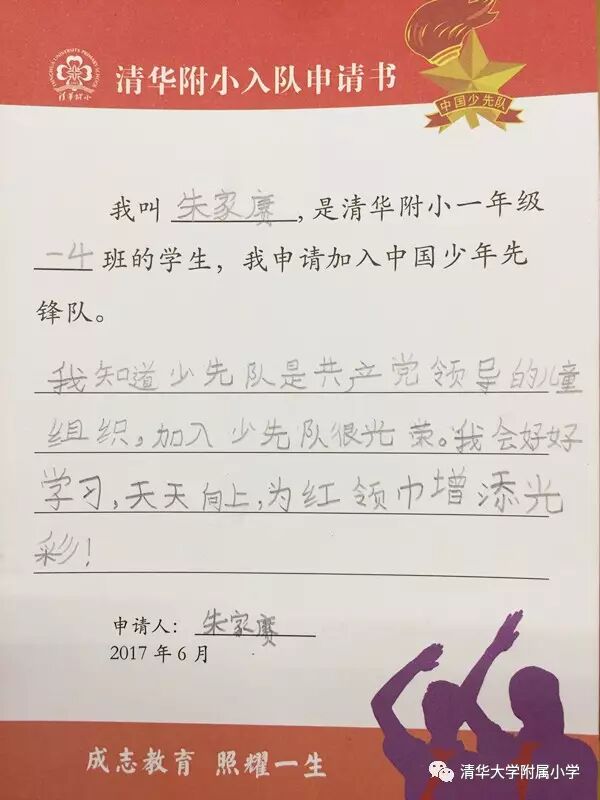 TSINGHUA UNIVERSITY PRIMARY SCHOOL
清华附小
清华附小入队申请书
中国少先队
我叫 朱家赓,是清华附小一年级
一4 班的学生，我申请加入中国少年先
锋队。
我知道少先队是共产党领导的儿童
组织,加入少先队很光荣。我会好好
学习,天天向上,为红领巾增添光
彩!
申请人: 朱家赓
2017 年 6 月
成志教育 照耀一生
清华大学附属小学